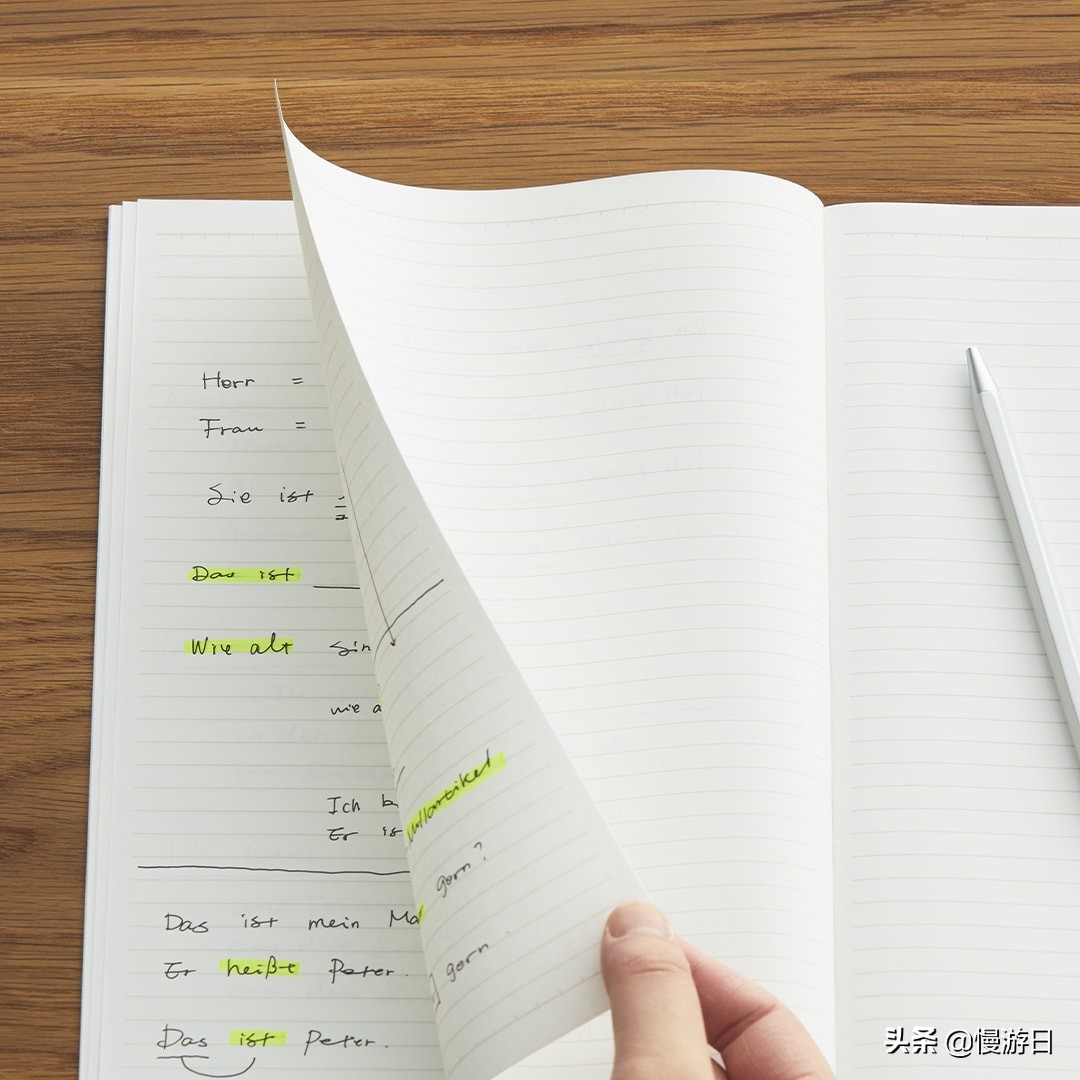 Herr =
Frau =
Sie ist
Das ist
Wie alt
wie a
Ich
Er is
Das ist mein
Er heißt Peter.
Das ist Peter.
Nullartikel
gern?
gern.
头条 @慢游日